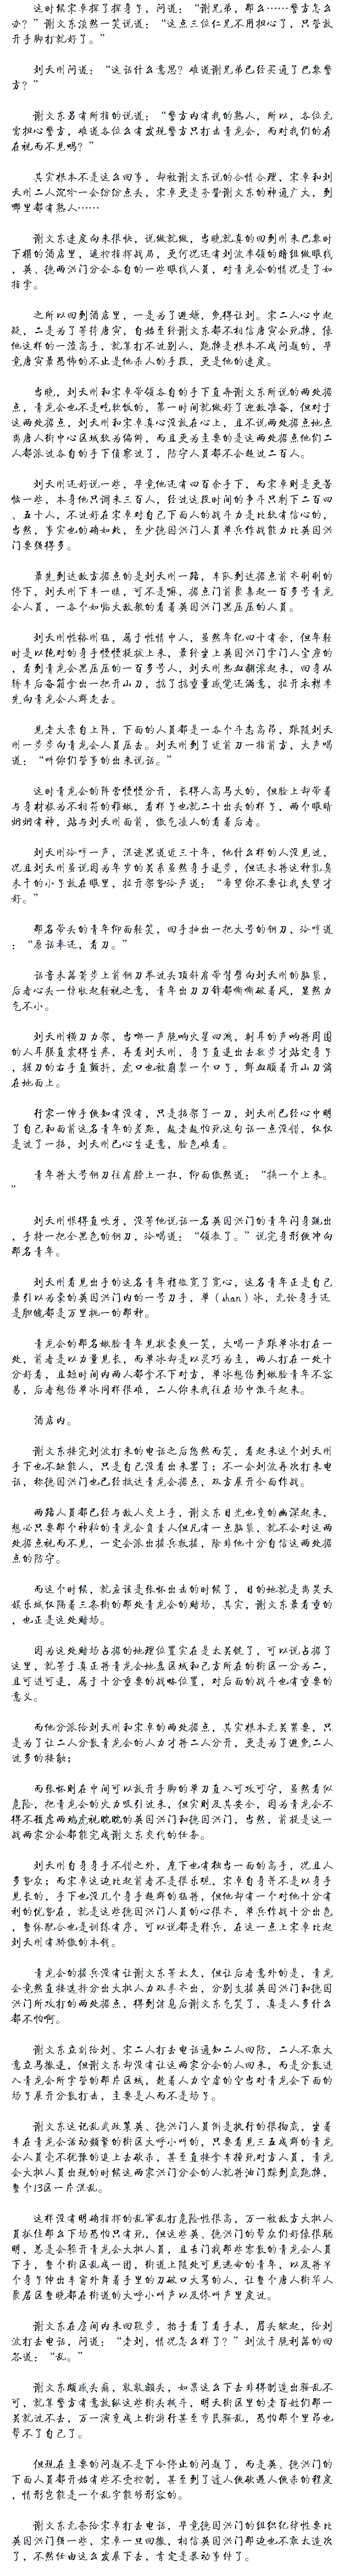 这时候宋卓探了探身子，问道：“谢兄弟，那么……警方怎么
办？”谢文东淡然一笑说道：“这点三位仁兄不用担心了，只管放
开手脚打就好了。”
刘天州问道：“这话什么意思？难道谢兄弟已经买通了巴黎警
方？”
谢文东另有所指的说道：“警方内有我的熟人，所以，各位无
需担心警方，难道各位么有发现警方只打击青龙会，而对我们的存
在视而不见吗？”
其实根本不是这么回事，却被谢文东说的合情合理，宋卓和刘
天州二人沉吟一会纷纷点头，宋卓更是夸赞谢文东的神通广大，到
哪里都有熟人……
谢文东速度向来很快，说做就做，当晚就真的回到州来巴黎时
下榻的酒店里，遥控指挥战局，更何况还有刘波率领的暗组做眼线
，英、德两洪门分会各自的一些眼线人员，对青龙会的情况是了如
指掌。
之所以回到酒店里，一是为了避嫌，免得让刘。宋二人心中起
疑，二是为了等待唐寅，自始至终谢文东都不相信唐寅会死掉，像
他这样的一流高手，就算打不过别人，跑掉是根本不成问题的，毕
竟唐寅最恐怖的不止是他杀人的手段，更是他的速度。
当晚，刘天州和宋卓带领各自的手下直奔谢文东所说的两处据
点，青龙会也不是吃软饭的，第一时间就做好了迎敌准备，但对于
这两处据点，刘天州和宋卓真心没放在心上，且不说两处据点地点
离唐人街中心区域较为偏僻，而且更为主要的是这两处据点他们二
人都派过各自的手下侦察过了，防守人员都不会超过二百人。
刘天州还好说一些，毕竟他还有四百余手下，而宋卓则是更苦
恼一些，本身他只调来三百人，经过这段时间的争斗只剩下二百四
、五十人，不过好在宋卓对自己下面人的战斗力是比较有信心的，
当然，事实也的确如此，至少德国洪门人员单兵作战能力比英国洪
门要强得多。
最先到达敌方据点的是刘天州一路，车队到达据点前齐刷刷的
停下，刘天州下车一瞧，可不是嘛，据点门前聚集起一百多号青龙
会人员，一各个如临大敌般的看着英国洪门黑压压的人员。
刘天州性格刚猛，属于性情中人，虽然年纪四十有余，但年轻
时是以绝对的身手慢慢提拔上来，最终坐上英国洪门掌门人宝座的
，看到青龙会黑压压的一百多号人，刘天州热血翻滚起来，回身从
轿车后备箱拿出一把开山刀，掂了掂重量感觉还满意，拉开衣襟率
先向青龙会人群走去。
见老大亲自上阵，下面的人员都是一各个斗志高昂，跟随刘天
州一步步向青龙会人员压去。刘天州到了近前刀一指前方，大声喝
道：“听你们管事的出来说话。”
这时青龙会的阵营慢慢分开，长得人高马大的，但脸上却带着
与身材极为不相符的稚嫩，看样子也就二十出头的样子，两个眼睛
炯炯有神，站与刘天州面前，傲气凌人的看着后者。
刘天州冷哼一声，混迹黑道近三十年，他什么样的人没见过，
况且刘天州虽说因为年岁的关系虽然身手退步，但还未将这种乳臭
未干的小子放在眼里，拉开架势冷声道：“希望你不要让我失望才
好。”
那名带头的青年仰面轻笑，回手抽出一把大号的钢刀，冷哼道
：“原话奉还，看刀。”
话音未落箭步上前钢刀举过头顶斜肩带臂劈向刘天州的脑袋，
后者心头一惊收起轻视之意，青年出刀刀锋都嘶嘶破着风，显然力
气不小。
刘天州横刀力架，当啷一声脆响火星四溅，刺耳的声响将周围
的人耳膜直震得生疼，再看刘天州，身子直退出去数步才站定身子
，握刀的右手直颤抖，虎口也被崩裂一个口子，鲜血顺着开山刀滴
在地面上。
行家一伸手便知有没有，只是招架了一刀，刘天州已经心中明
了自己和面前这名青年的差距，越老越怕死这句话一点没错，仅仅
是过了一招，刘天州已心生退意，脸色难看。
青年将大号钢刀往肩膀上一扛，仰面傲然道：“换一个上来。
”
刘天州恨得直咬牙，没等他说话一名英国洪门的青年闪身跳出
，手持一把全黑色的钢刀，冷喝道：“领教了。”说完身形便冲向
那名青年。
刘天州看见出手的这名青年稍微宽了宽心，这名青年正是自己
最引以为豪的英国洪门内的一号刀手，单（shan）冰，无论身手还
是胆魄都是万里挑一的那种。
青龙会的那名嫩脸青年见状豪爽一笑，大喝一声跟单冰打在一
处，前者是以力量见长，而单冰却是以灵巧为主，两人打在一处十
分好看，且短时间内两人都拿不下对方，单冰想伤到嫩脸青年不容
易，后者想伤单冰同样很难，二人你来我往在场中激斗起来。
酒店内。
谢文东接完刘波打来的电话之后悠然而笑，看起来这个刘天州
手下也不缺能人，只是自己没看出来罢了；不一会刘波再次打来电
话，称德国洪门也已经抵达青龙会据点，双方展开全面作战。
两路人员都已经与敌人交上手，谢文东目光也变的幽深起来，
想必只要那个神秘的青龙会负责人但凡有一点脑袋，就不会对这两
处据点视而不见，一定会派出援兵救援，除非他十分自信这两处据
点的防守。
而这个时候，就应该是张怀出击的时候了，目的地就是离昊天
娱乐城仅隔着三条街的那处青龙会的赌场，其实，谢文东最看重的
，也正是这处赌场。
因为这处赌场占据的地理位置实在是太关键了，可以说占据了
这里，就等于真正将青龙会地盘区域和己方所在的街区一分为二，
且可进可退，属于十分重要的战略位置，对后面的战斗也有重要的
意义。
而他分派给刘天州和宋卓的两处据点，其实根本无关紧要，只
是为了让二人分散青龙会的人力才将二人分开，更是为了避免二人
过多的接触；
而张怀则在中间可以放开手脚的单刀直入可攻可守，虽然看似
危险，把青龙会的火力吸引过来，但实则及其安全，因为青龙会不
得不顾虑两端虎视眈眈的英国洪门和德国洪门，当然，前提是这一
战两家分会都能完成谢文东交代的任务。
刘天州自身身手不错之外，麾下也有独当一面的高手，况且人
多势众；而宋卓这边比起前者不是很乐观，宋卓自身并不是以身手
见长的，手下也没几个身手超群的猛将，但他却有一个对他十分有
利的优势在，就是这些德国洪门人员的心很齐，单兵作战十分出色
，整体配合也是训练有序，可以说都是精兵，在这一点上宋卓比起
刘天州有骄傲的本钱。
青龙会的援兵没有让谢文东等太久，但让后者意外的是，青龙
会竟然直接选择分出大批人力双拳齐出，分别支援英国洪门和德国
洪门所攻打的两处据点，得到消息后谢文东气笑了，真是人多什么
都不怕啊。
谢文东立刻给刘、宋二人打去电话通知二人回防，二人不敢大
意立马撤退，但谢文东却没有让这两家分会的人回来，而是分散进
入青龙会所掌管的那片区域，趁着人力空虚的空当对青龙会下面的
场子展开分散打击，主要是人而不是场子。
谢文东这记乱武政策英、德洪门人员倒是执行的很彻底，坐着
车在青龙会活动频繁的街区大呼小叫的，只要看见三五成群的青龙
会人员毫不犹豫的追上去砍杀，甚至直接拿车撞死对方人员，青龙
会大批人员出现的时候这两家洪门分会的人就将油门踩到底跑掉，
整个13区一片混乱。
这样没有明确指挥的乱窜乱打危险性很高，万一被敌方大批人
员抓住那么下场恐怕只有死，但这些英、德洪门的帮众们好像很聪
明，总是会躲开青龙会大批人员，且专门找那些零散的青龙会人员
下手，整个街区乱成一团，街道上随处可见逃命的青年，以及将半
个身子伸出车窗外舞着手里的刀破口大骂的人，让整个唐人街华人
聚居区整晚都在街道的大呼小叫声以及惨叫声里度过。
谢文东在房间内来回踱步，抬手看了看手表，眉头皱起，给刘
波打去电话，问道：“老刘，情况怎么样了？”刘波干脆利落的回
答道：“乱。”
谢文东顿感头痛，敲敲额头，如果这么下去非得制造出骚乱不
可，就算警方有意放纵这些街头械斗，明天街区里的老百姓们那一
关就过不去，万一演变成上街游行甚至市民骚乱，恐怕那个里昂也
帮不了自己了。
但现在主要的问题不是下令停止的问题了，而是英、德洪门的
下面人员都开始有些不受控制，甚至到了逢人便砍遇人便杀的程度
，情形岂能是一个乱字能够形容的。
谢文东无奈给宋卓打去电话，毕竟德国洪门的组织纪律性要比
英国洪门强一些，宋卓一旦回撤，相信英国洪门那边也不敢太造次
了，不然任由这么发展下去，肯定是暴动事件了。